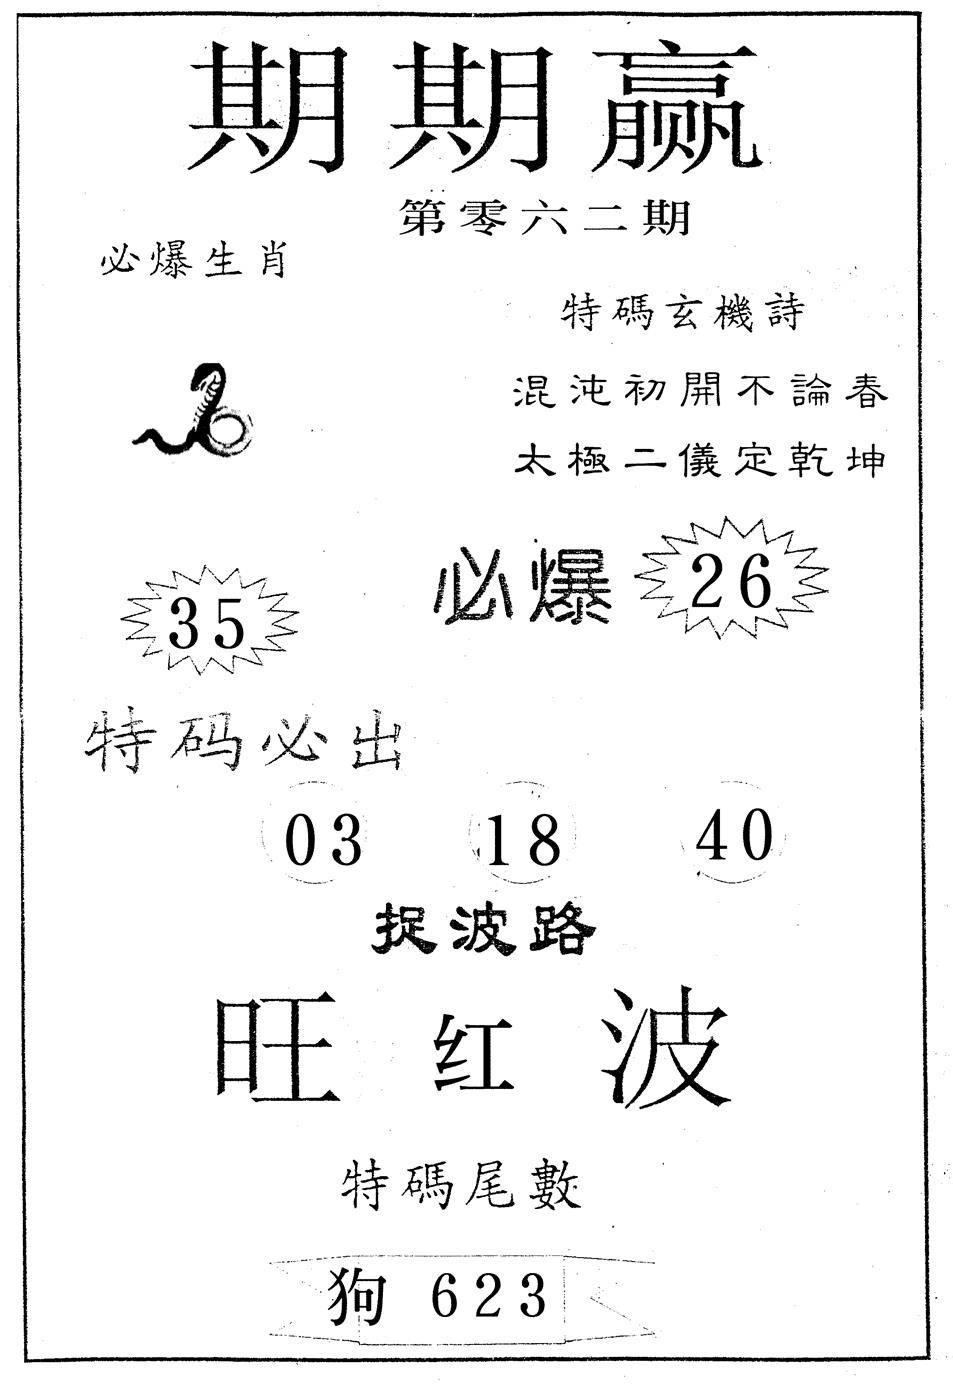 期期赢
第零六二期
必爆生肖
特碼玄機詩
混沌初開不論春
太極二儀定乾坤
必爆 26
35
特码必出
03 18 40
捉波路
旺红波
特碼尾數
狗 623